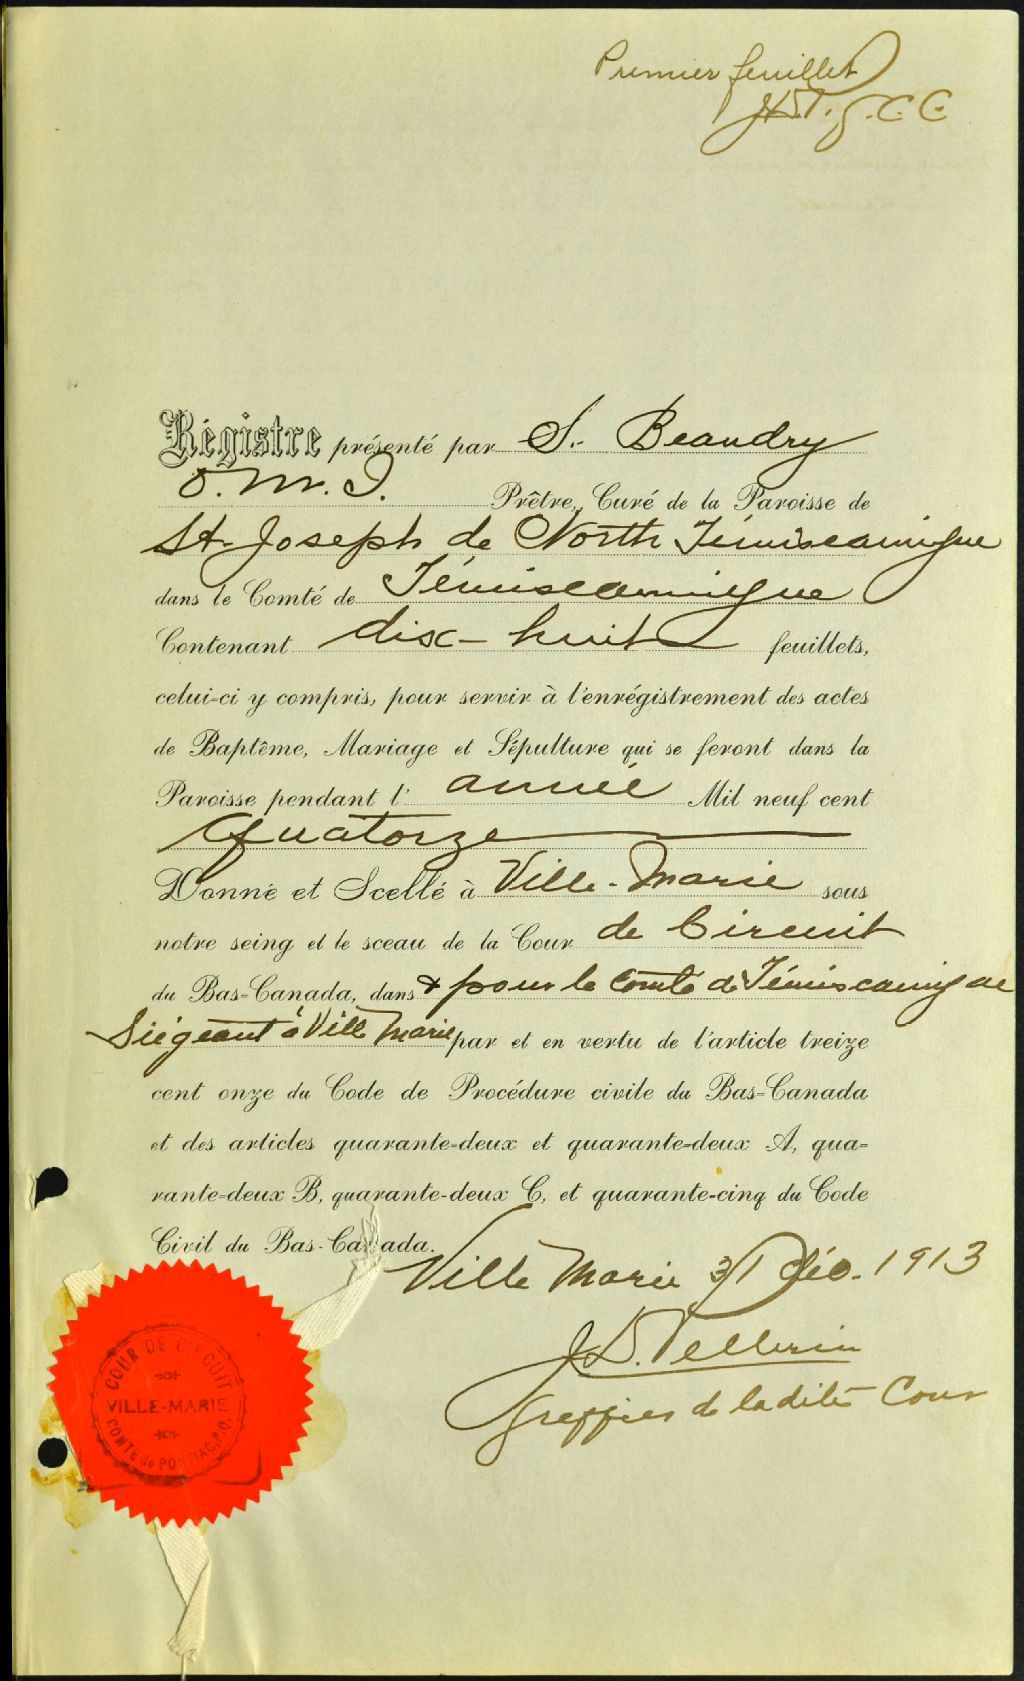 Premier feuillet
J.D.P. g. C. C.
Régistre présenté par S. Beaudry
O.M.I. Prêtre, Curé de la Paroisse de
St-Joseph de North Témiscamingue
dans le Comté de Témiscamingue
Contenant dix-huit feuillets,
celui-ci y compris, pour servir à l'enrégistrement des actes
de Baptême, Mariage et Sépulture qui se feront dans la
Paroisse pendant l' année Mil neuf cent
quatorze
Donné et Scellé à Ville-Marie sous
notre seing et le sceau de la Cour de Circuit
du Bas-Canada, dans & pour le Comté de Témiscamingue
Siégeant à Ville Marie par et en vertu de l'article treize
cent onze du Code de Procédure civile du Bas-Canada
et des articles quarante-deux et quarante-deux A, qua-
rante-deux B, quarante-deux C, et quarante-cinq du Code
Civil du Bas-Canada.
Ville Marie 31 Déc. 1913
J.D. Pellerin
Greffier de la dite Cour
COUR DE CIRCUIT
VILLE-MARIE
COMTÉ de PONTIAC, P.Q.